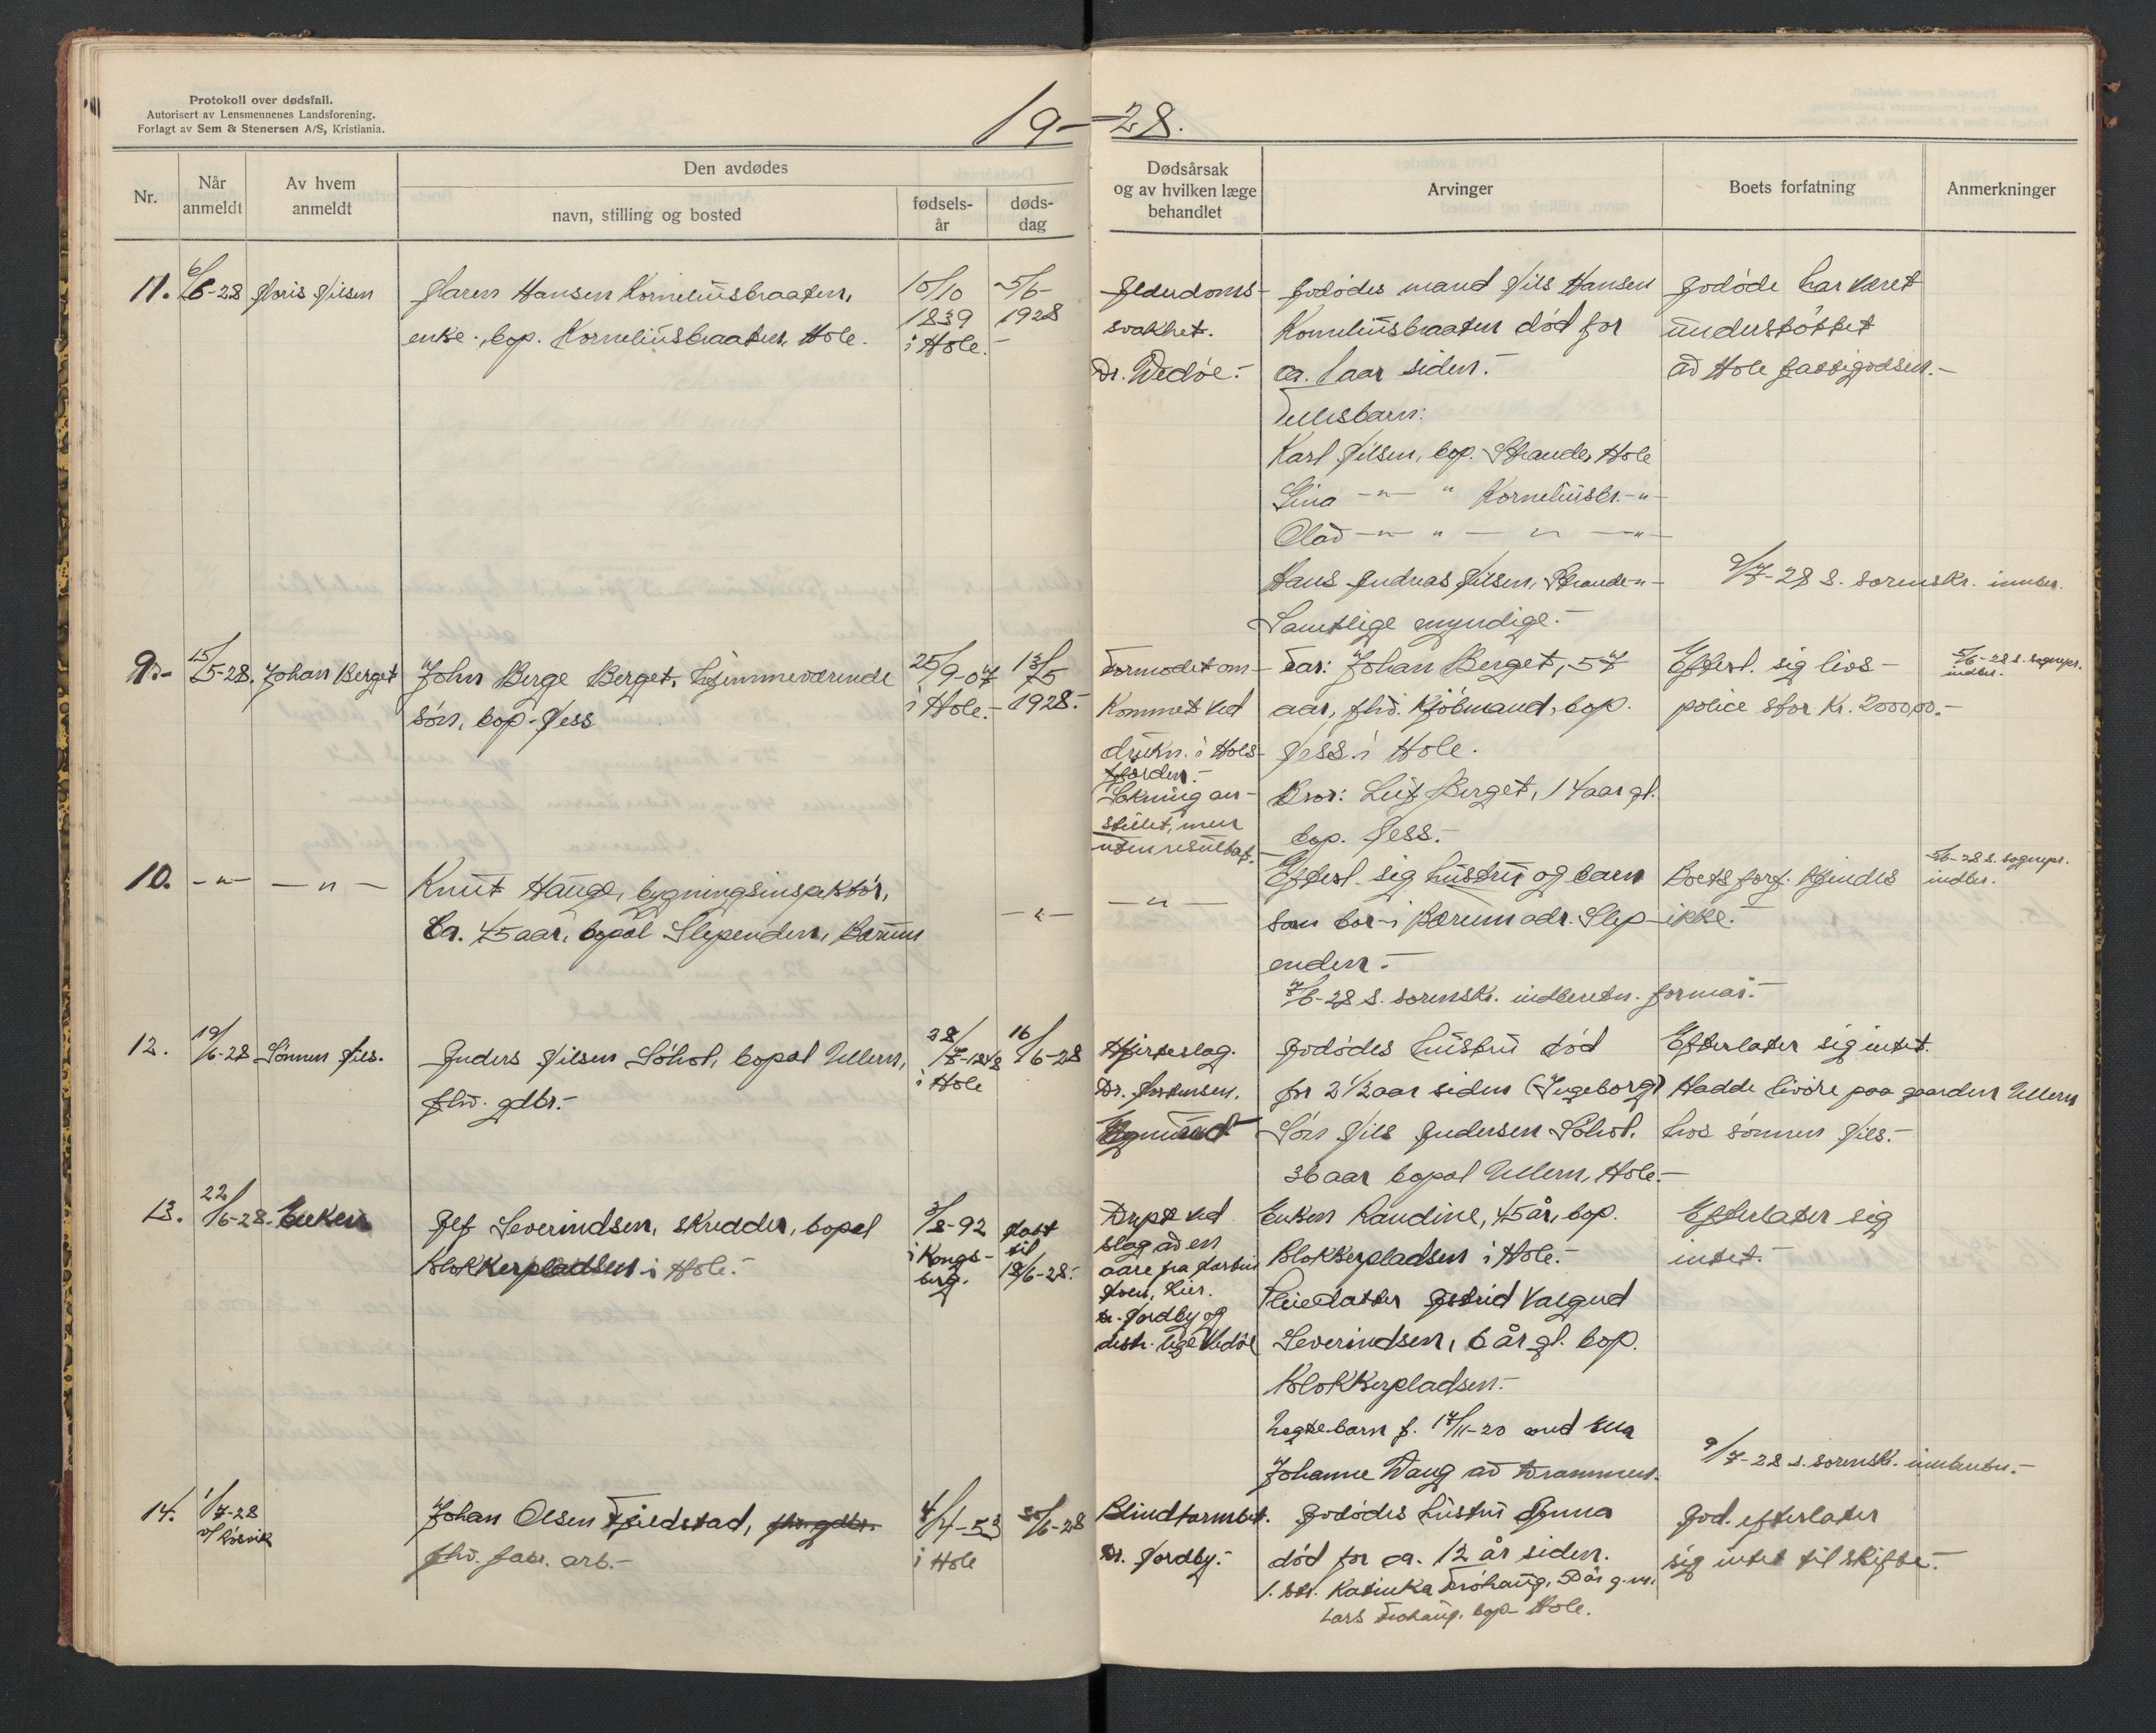 Protokoll over dødsfall.
Autorisert av Lensmennenes Landsforening.
Forlagt av Sem & Stenersen A/S, Kristiania.
19-28.
Nr.
Når anmeldt
Av hvem anmeldt
Den avdødes
navn, stilling og bosted
fødselsår
dødsdag
Dødsårsak og av hvilken læge behandlet
Arvinger
Boets forfatning
Anmerkninger
11. 6/6-28
Nilsen
Hansen Korneliusbraaten,
enke, bop. Korneliusbraaten, Hole.
10/10 1839 i Hole.
5/6- 1928
Alderdoms-
svakhet.
Dr. Wedøe.-
Avdødes mand Nils Hansen
Korneliusbraaten død for
ca. 1 aar siden.-
Fellesbarn:
Karl Nilsen, bop. Strande, Hole
Lina -"- " Korneliusbr. -"-
Olav -"- " -"- -"-
Hans Andreas Nilsen, Strande -"-
Samtlige myndige.-
Avdøde har været
understøttet
av Hole fattigvæsen.-
9/7-28 s. sorenskr. innber.
9.- 15/5-28.
Johan Berget
John Berge Berget, hjemmeværende
søn, bop. Næss
25/9-07
i Hole.-
13/5
1928.-
Formodet om-
kommet ved
drukn. i Hols-
fjorden.-
Sökning an-
stillet, men
uten resultat.-
Far: Johan Berget, 57
aar, fhv. kjøbmand, bop.
Næss i Hole.
Bror: Leif Berget, 14 aar gl.
bop. Næss.-
Efterl. sig livs-
police stor kr. 2000,00.-
5/6-28 s. sognepr.
indber.
10. -"- -"-
Knut Hauge, bygningsinspektör,
Ca. 45 aar, bopæl Slependen, Bærum
-"-
-"-
Efterl. sig hustru og barn
som bor i Bærum adr. Slep-
enden.-
7/6-28 s. sorenskr. indberetn. formar.-
Boets forf. kjendes
ikke.-
5/6-28 s. sognepr.
indber.
12. 19/6-28
Sönnen Nils.
Anders Nilsen Söhol, bopæl Ullern,
fhv. gdbr.-
i Hole
16/6-28
Hjerteslag.
Dr. Mortensen.
Avdødes hustru død
for 2 1/2 aar siden (Ingeborg)
Søn Nils Andersen Söhol,
36 aar bopæl Ullern, Hole.-
Efterlater sig intet.
Hadde livøre paa gaarden Ullern
hos sønnen Nils.-
13. 22/6-28. Enken
Alf Severindsen, skredder, bopæl
Blokkerpladsen i Hole.-
3/8-92
i Kongs-
berg.
natt
til
18/6-28.-
Dræpt ved
slag av en
aare fra
Lier.
Dr. Nordby og
distr. læge Wedöe
Enken Randine, 45 år, bop.
Blokkerpladsen i Hole.-
Pleiedatter Astrid Valgerd
Severindsen, 6 år gl. bop.
Blokkerpladsen.-
Uegte barn f. 17/11-20 med Ella
Johanne Waag av Drammen.
Efterlater sig
intet.-
9/7-28 s. sorenskr. innberetn.-
14. 1/7-28
v/ Løsvik
Johan Olsen Fjeldstad, fhv. gdbr.
fhv. fabr. arb.-
4/4-53
i Hole
30/6-28
Blindtarmbet.
Dr. Nordby.-
Avdødes hustru Anna
død for ca. 12 år siden.
1. Dtr. Katinka Frøhaug, 50 år g. m.
Lars Frøhaug, bop. Hole.
Avd. efterlater
sig intet til skifte.-